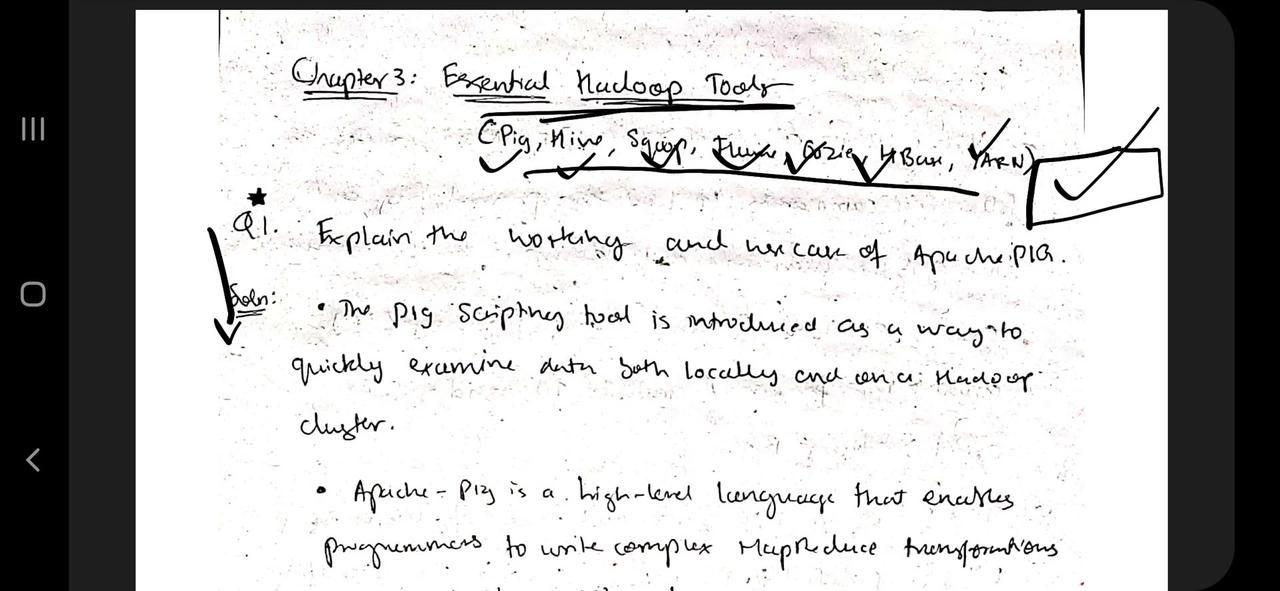 Chapter 3: Essential Hadoop Tools
(Pig, Hive, Sqoop, Flume, Oozie, HBase, YARN)
Q1. Explain the working and use case of Apache PIG.
Soln:
• The Pig Scripting tool is introduced as a way to
quickly examine data both locally and on a Hadoop
cluster.
• Apache-Pig is a high-level language that enables
programmers to write complex MapReduce transformations